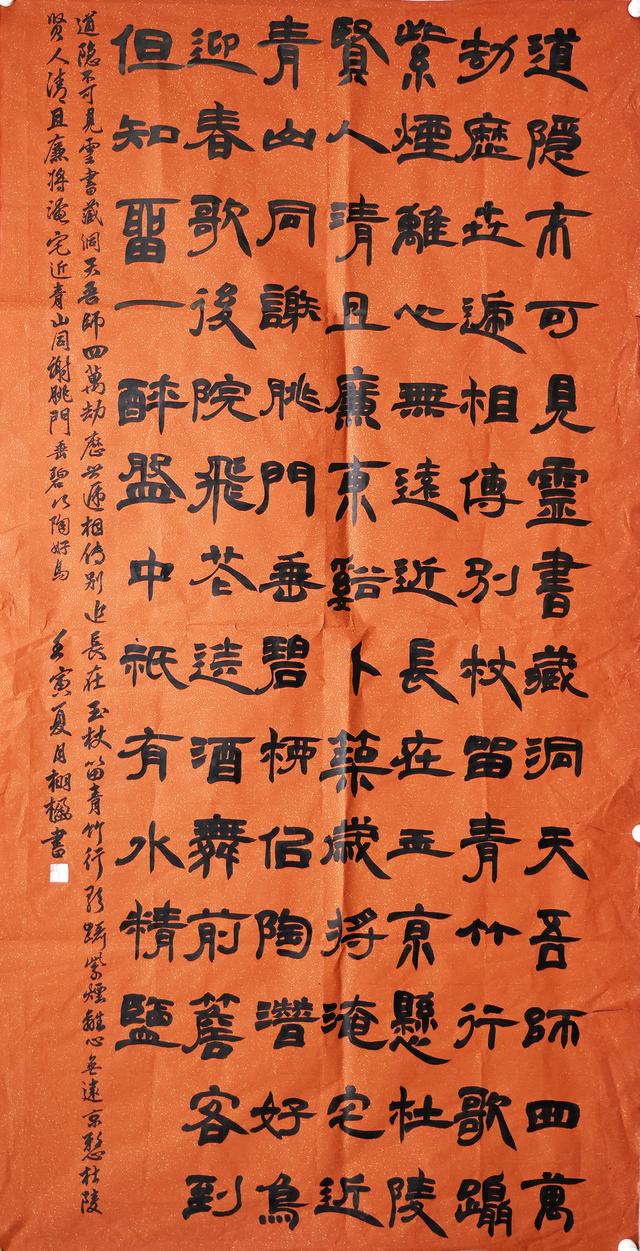 道隱不可見靈書藏洞天吾師四萬
劫歷世遞相傳別杖留青竹行歌躡
紫煙離心無遠近長在玉京懸杜陵
賢人清且廉東谿卜築歲將淹宅近
青山同謝朓門垂碧柳佀陶潛好鳥
迎春歌後院飛花送酒舞前簷客到
但知留一醉盤中祇有水精鹽
道隐不可見靈書藏洞天吾師四萬劫歷世遞相傳別近長在玉杖留青竹行歌躡紫煙離心無遠京懸杜陵
賢人清且廉將淹宅近青山同謝朓門垂碧柳似陶好鳥 壬寅夏月書